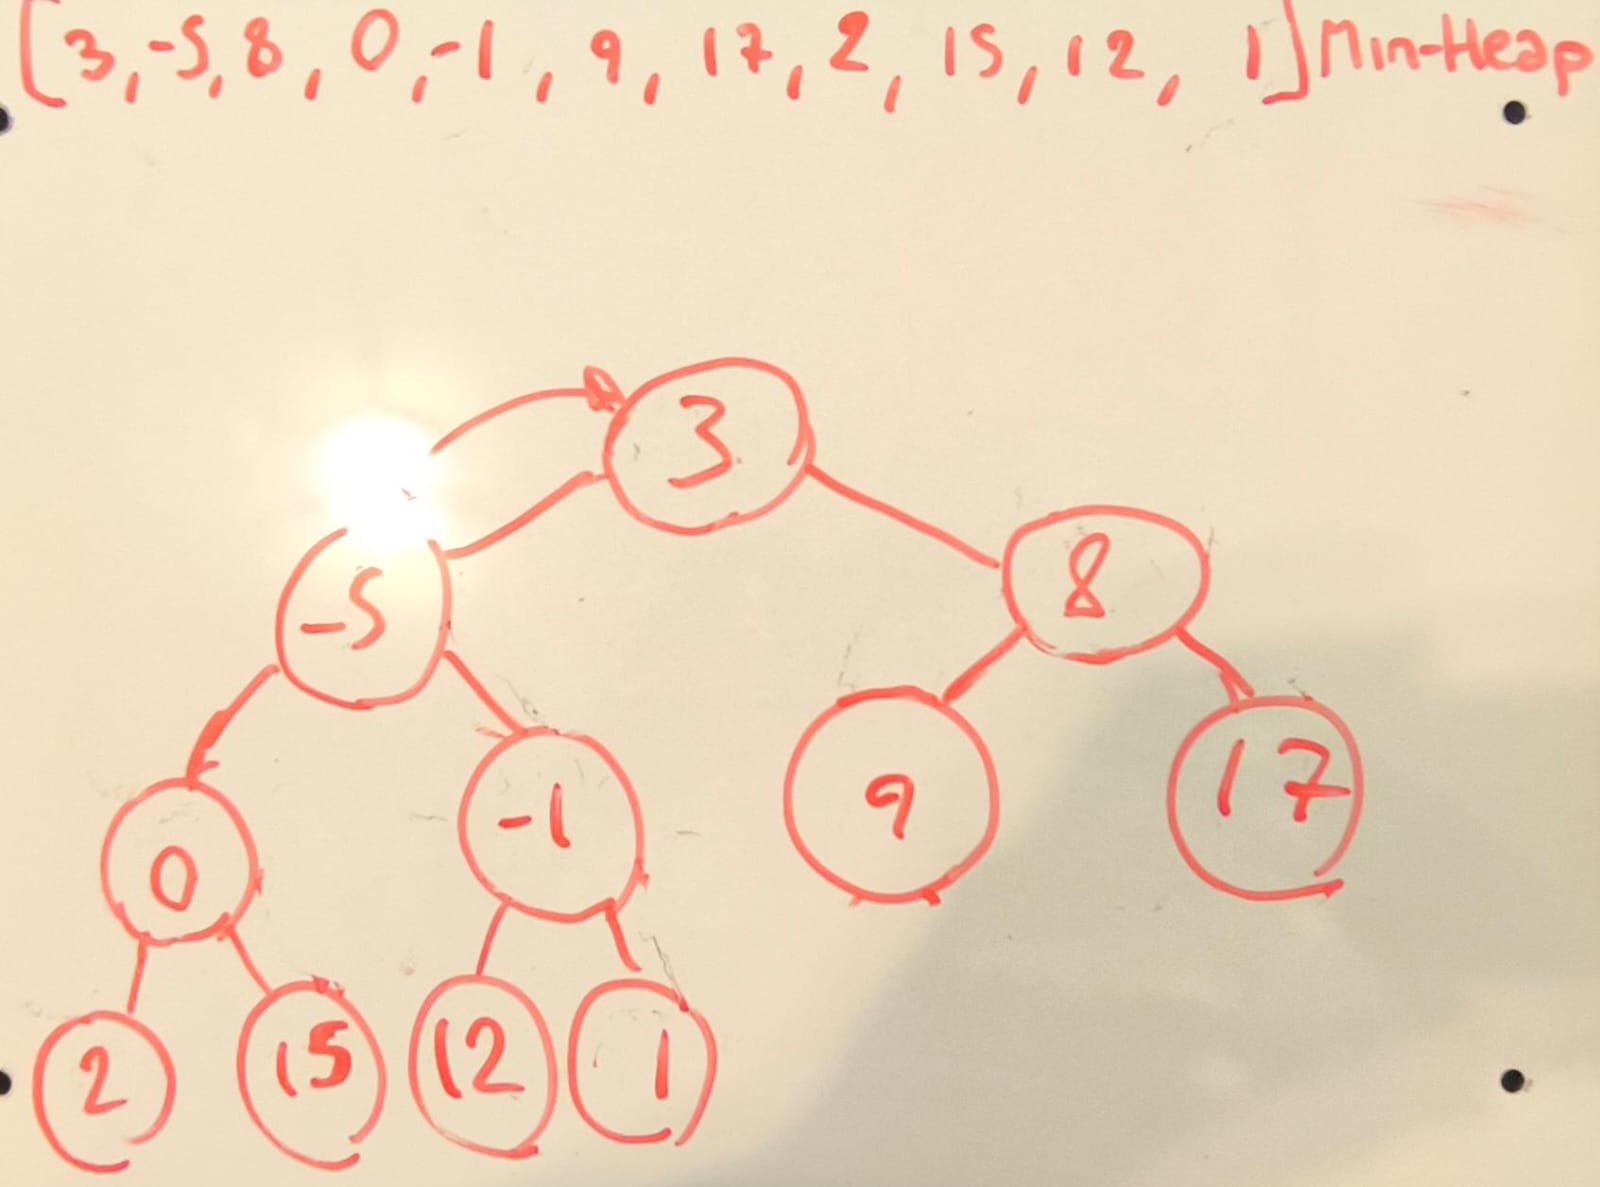 [3, -5, 8, 0, -1, 9, 17, 2, 15, 12, 1] Min-Heap
3
-5 8
0 -1 9 17
2 15 12 1